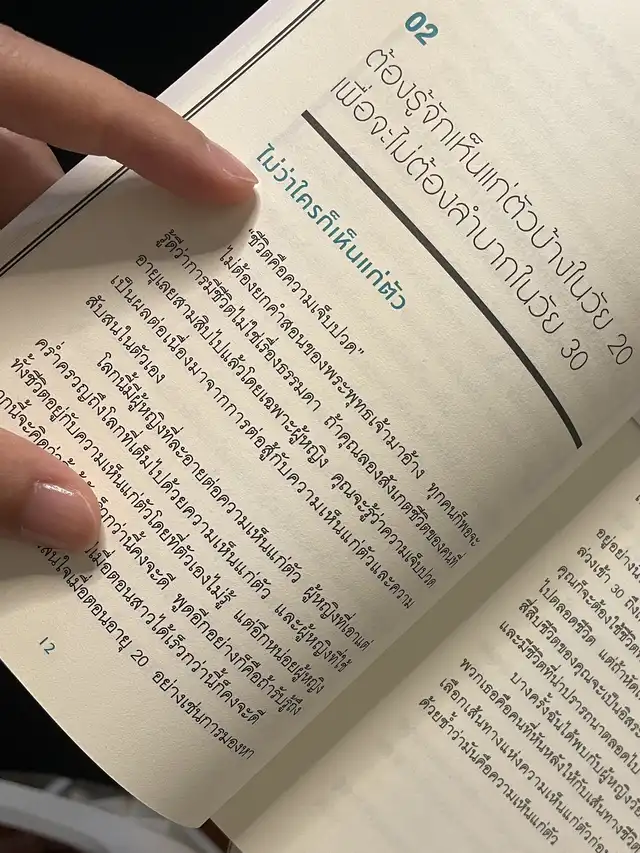 02
ต้องรู้จักเห็นแก่ตัวบ้างในวัย 20
เพื่อจะไม่ต้องลำบากในวัย 30
ไม่ว่าใครก็เห็นแก่ตัว
"ชีวิตคือความเจ็บปวด"
ไม่ต้องยกคำสอนของพระพุทธเจ้ามาอ้าง ทุกคนก็พอจะ
รู้ดีว่าการมีชีวิตไม่ใช่เรื่องธรรมดา ถ้าคุณลองสังเกตชีวิตของคนที่
อายุเลยสามสิบไปแล้วโดยเฉพาะผู้หญิง คุณจะรู้ว่าความเจ็บปวด
เป็นผลต่อเนื่องมาจากการต่อสู้กับความเห็นแก่ตัวและความ
สับสนในตัวเอง
โลกนี้มีผู้หญิงที่ละอายต่อความเห็นแก่ตัว ผู้หญิงที่เอาแต่
คร่ำครวญถึงโลกที่เต็มไปด้วยความเห็นแก่ตัว และผู้หญิงที่ใช้
ทั้งชีวิตอยู่กับความเห็นแก่ตัวโดยที่ตัวเองไม่รู้ แต่อีกหน่อยผู้หญิง
กว่านี้คงจะดี พูดอีกอย่างก็คือถ้ารับรู้ถึง
เมื่อตอนสาวได้เร็วกว่านี้ก็คงจะดี
เมื่อตอนอายุ 20 อย่างเช่นการมองหา
12
อยู่อย่างนั้
ล่วงเข้า 30 ถึง
คุณก็จะต้องใช้ชีวิต
ไปตลอดชีวิต แต่ถ้าหัด
สี่สิบชีวิตของคุณจะเป็นอิสระ
และมีชีวิตที่น่าปรารถนาตลอดไป
บางครั้งฉันได้พบกับผู้หญิงวัย
พวกเธอคือคนที่หันหลังให้กับเส้นทางชีวิต
เลือกเส้นทางแห่งความเห็นแก่ตัวก่อน
ด้วยซ้ำว่ามันคือความเห็นแก่ตัว